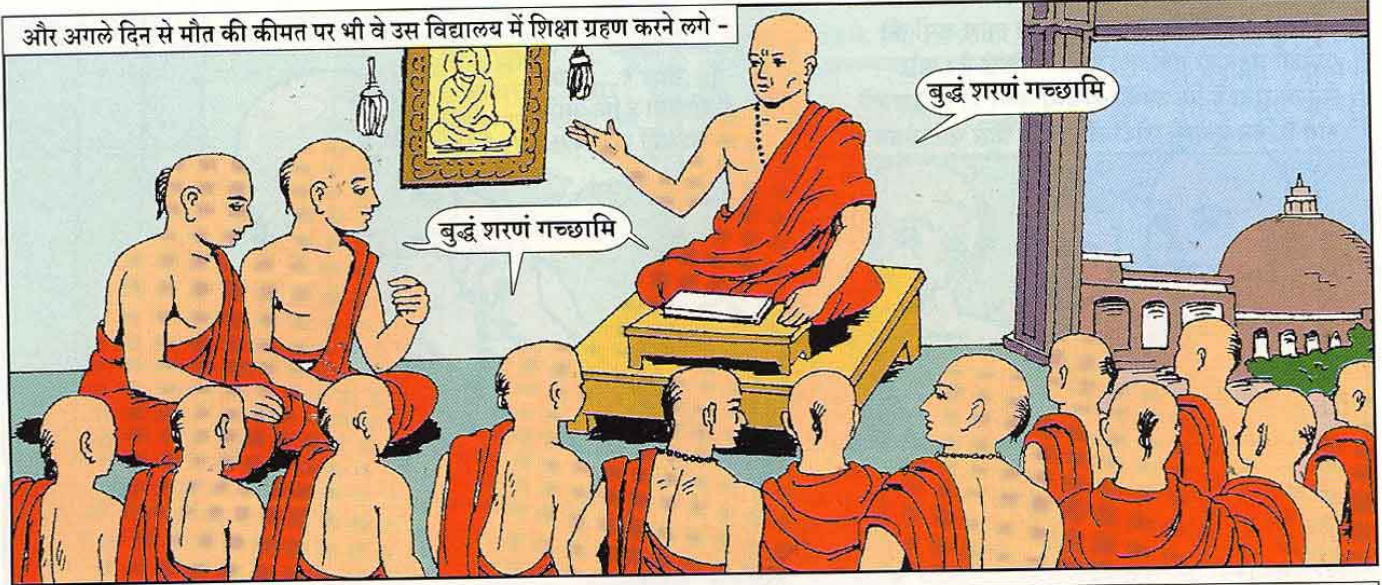 और अगले दिन से मौत की कीमत पर भी वे उस विद्यालय में शिक्षा ग्रहण करने लगे -
बुद्धं शरणं गच्छामि
बुद्धं शरणं गच्छामि